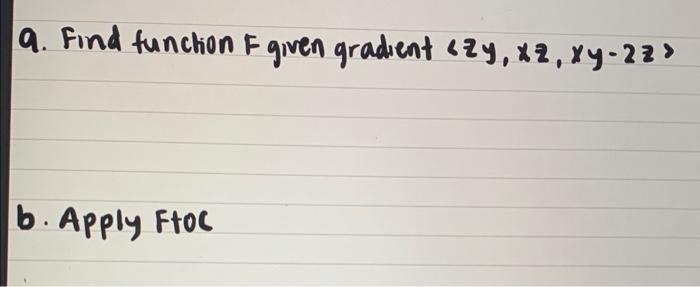 a. Find function F given gradient <zy, xz, xy-2z>
b. Apply FtoC